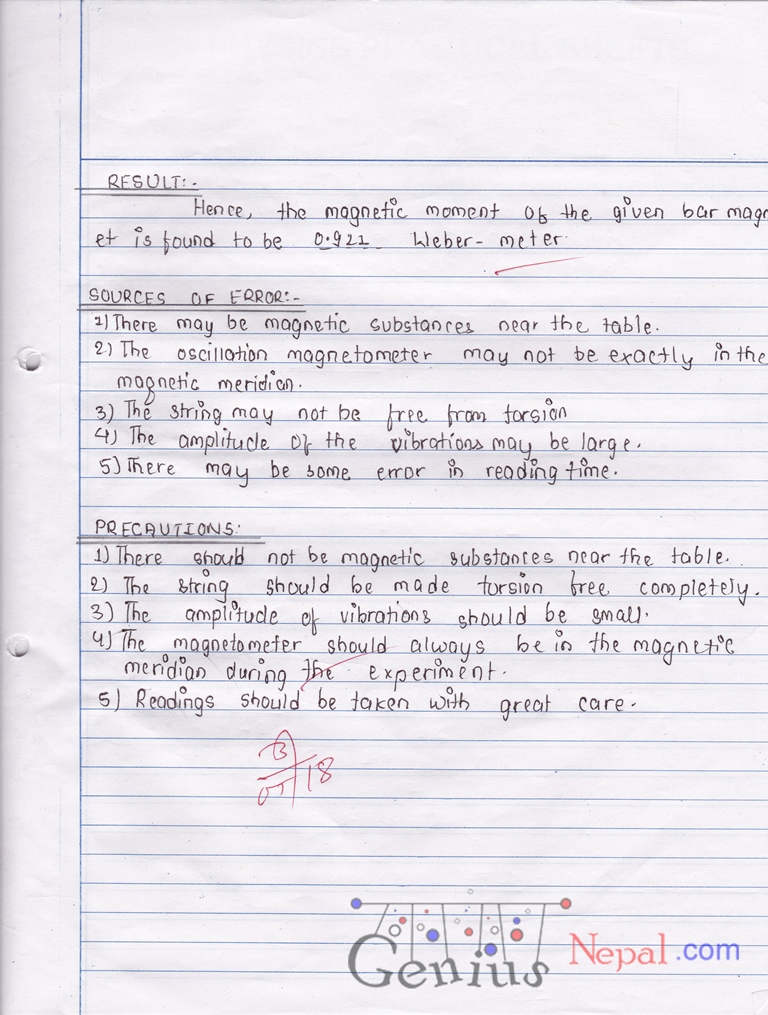 RESULT:-
Hence, the magnetic moment of the given bar magn
et is found to be 0.921 Weber-meter.
SOURCES OF ERROR:-
1) There may be magnetic substances near the table.
2) The oscillation magnetometer may not be exactly in the
magnetic meridian.
3) The string may not be free from torsion
4) The amplitude of the vibrations may be large.
5) There may be some error in reading time.
PRECAUTIONS:
1) There should not be magnetic substances near the table.
2) The string should be made torsion free completely.
3) The amplitude of vibrations should be small.
4) The magnetometer should always be in the magnetic
meridian during the experiment.
5) Readings should be taken with great care.
18
Genius Nepal.com